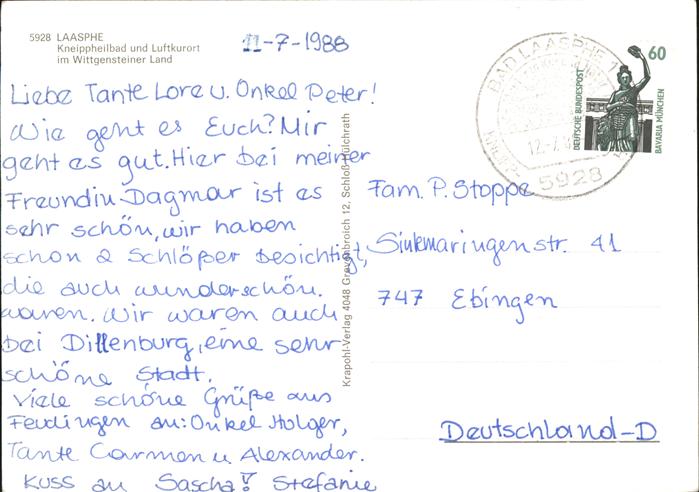 5928 LAASPHE
Kneippheilbad und Luftkurort
im Wittgensteiner Land
11-7-1988
Liebe Tante Lore u. Onkel Peter!
Wie geht es Euch? Mir
geht es gut. Hier bei meiner
Freundin Dagmar ist es
sehr schön, wir haben
schon 2 Schlößer besichtigt,
die auch wunderschön
waren. Wir waren auch
bei Dillenburg, eine sehr
schöne Stadt.
Viele schöne Grüße aus
Feudingen an: Onkel Holger,
Tante Carmen u. Alexander.
Kuss an Sascha! Stefanie
Krapohl-Verlag 4048 Grevenbroich 12, Schloß Hülchrath
BAD LAASPHE 1
12.-7.
5928
60
DEUTSCHE BUNDESPOST
BAVARIA MÜNCHEN
Fam. P. Stoppe
Sinkmaringenstr. 41
747 Ebingen
Deutschland-D